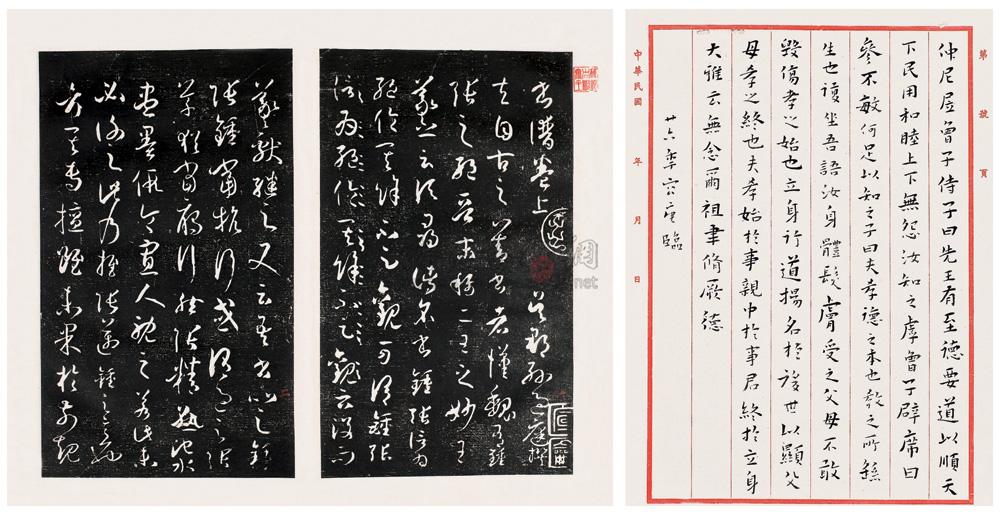 書譜卷上 吳郡孫過庭撰
夫自古之善書者漢魏有鍾
張之絕晉末稱二王之妙王
羲之云頃尋諸名書鍾張信為
絕倫其餘不足觀可謂鍾張
信為絕倫其餘不足觀云沒而
羲獻繼之又云吾書比之鍾
張鍾當抗行或謂過之張
草猶當雁行然張精熟池水
盡墨假令寡人耽之若此未
必謝之此乃推張邁鍾之意
考其專擅雖未果於前規
第 號 頁
仲尼居曾子侍子曰先王有至德要道以順天
下民用和睦上下無怨汝知之虖曾子辟席曰
參不敏何足以知之子曰夫孝德之本也教之所繇
生也復坐吾語汝身體髮膚受之父母不敢
毀傷孝之始也立身行道揚名於後世以顯父
母孝之終也夫孝始於事親中於事君終於立身
大雅云無念爾祖聿脩厥德
廿六年 臨
中華民國 年 月 日